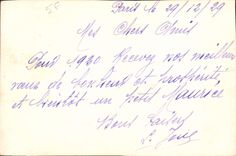 Paris le 29/12/29
Mes Chers Amis
Pour 1930 Recevez nos meilleurs
vœux de bonheur et prospérité,
et bientôt un petit Maurice
Bons baisers